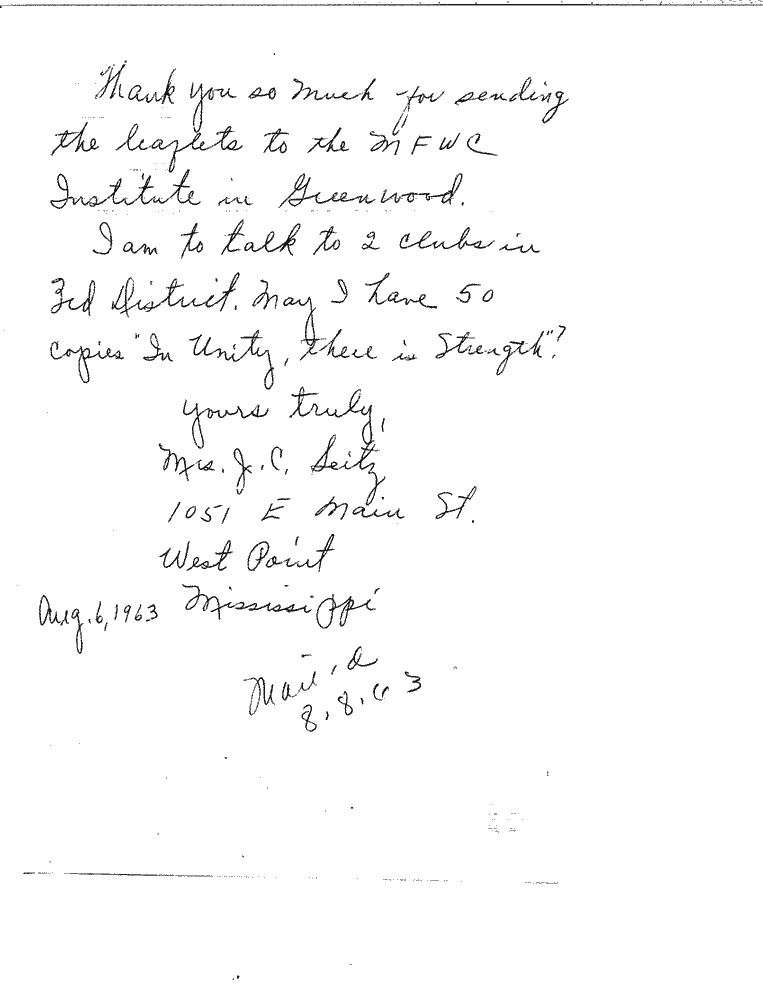 Thank you so much for sending
the leaflets to the MFWC
Institute in Greenwood.
I am to talk to 2 clubs in
3rd District. May I have 50
copies "In Unity, there is Strength"?
Yours truly,
Mrs. J. C. Seitz
1051 E Main St.
West Point
Aug. 6, 1963 Mississippi
Mailed
8.8.63